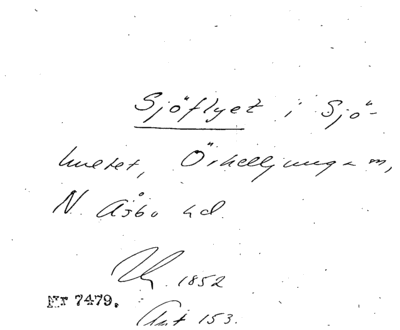 Sjöflyet i Sjö-
hultet, Örkelljunga m,
N. Åsbo hd.
1852
Nr 7479.
Ant 153.